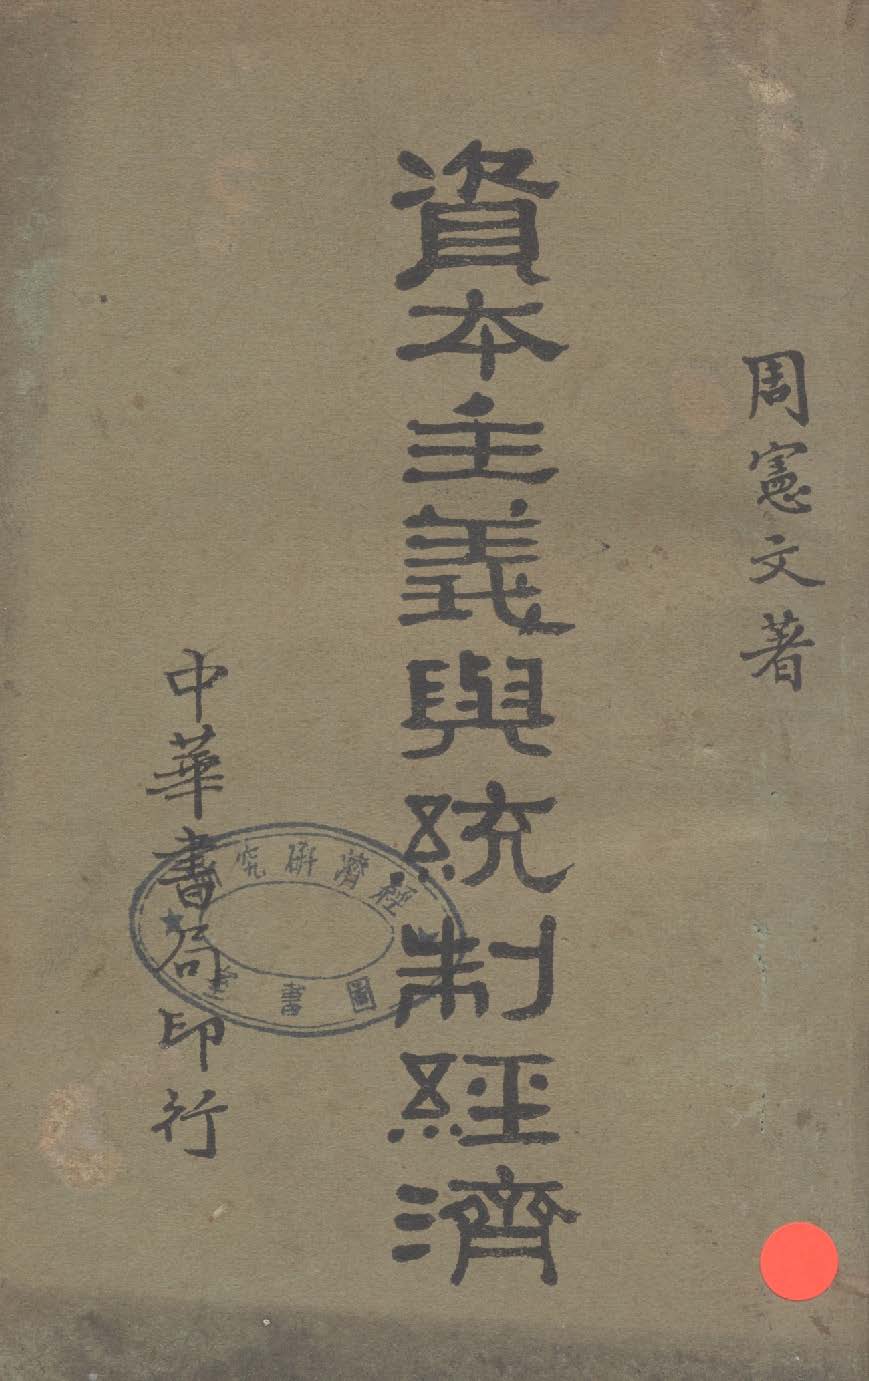 周憲文著
資本主義與統制經濟
中華書局印行
經濟研究
圖書室